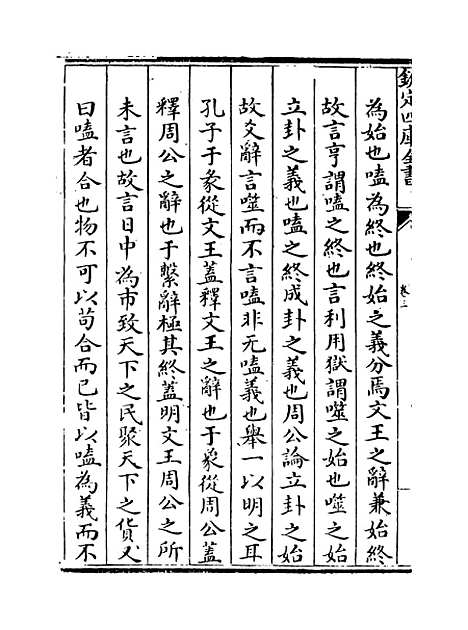 欽定四庫全書
卷三
為始也嗑為終也終始之義分焉文王之辭兼始終
故言亨謂嗑之終也言利用獄謂噬之始也噬之始
立卦之義也嗑之終成卦之義也周公論立卦之始
故爻辭言噬而不言嗑非无嗑義也舉一以明之耳
孔子于彖從文王蓋釋文王之辭也于象從周公蓋
釋周公之辭也于繫辭極其終蓋明文王周公之所
未言也故言日中為市致天下之民聚天下之貨又
曰嗑者合也物不可以苟合而已皆以嗑為義而不